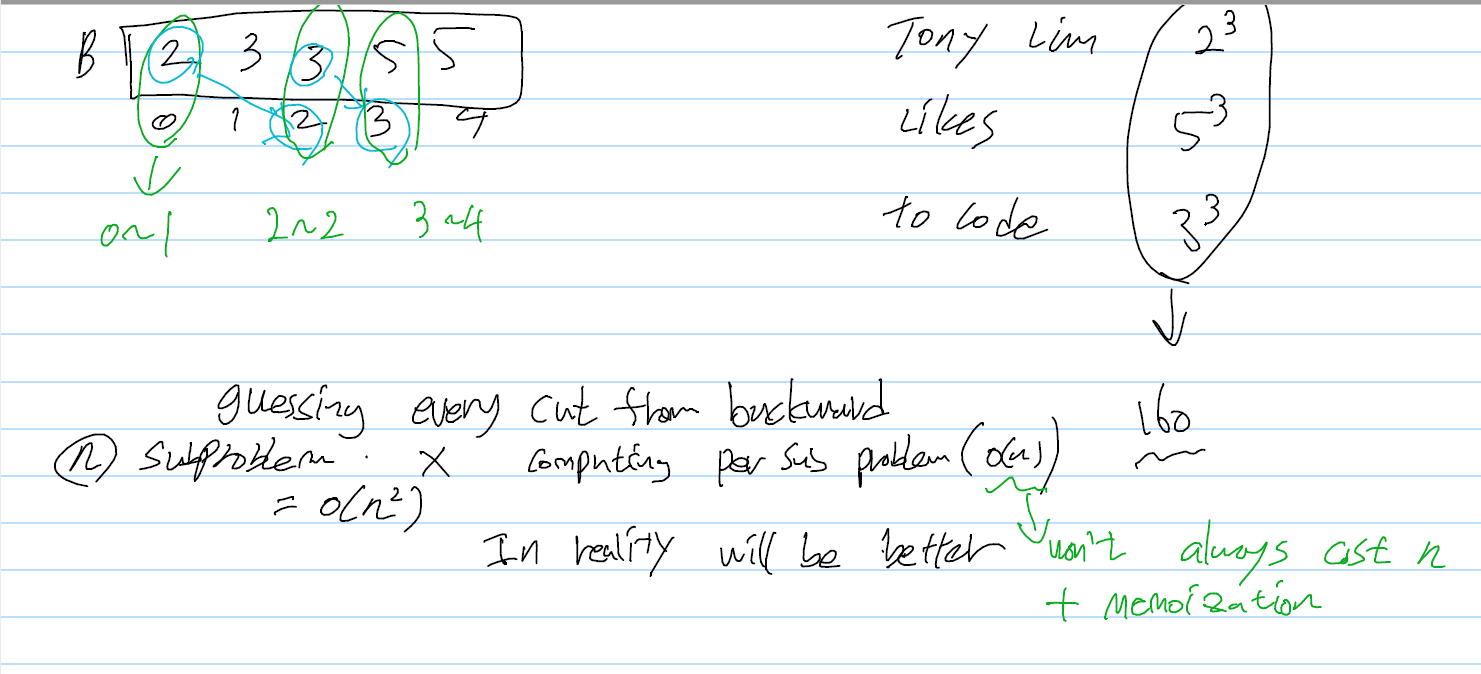 B 2 3 3 5 5
0 1 2 3 4
0~1 2~2 3~4
Tony Lim 2³
Likes 5³
to code 3³
160
guessing every cut from backward
(n) subproblem. × computing per sub problem (O(n))
= O(n²)
In reality will be better
won't always cost n
+ memoization